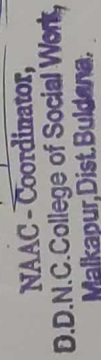 NAAC - Coordinator,
D.D.N.C.College of Social Work,
Malkapur,Dist.Buldana.